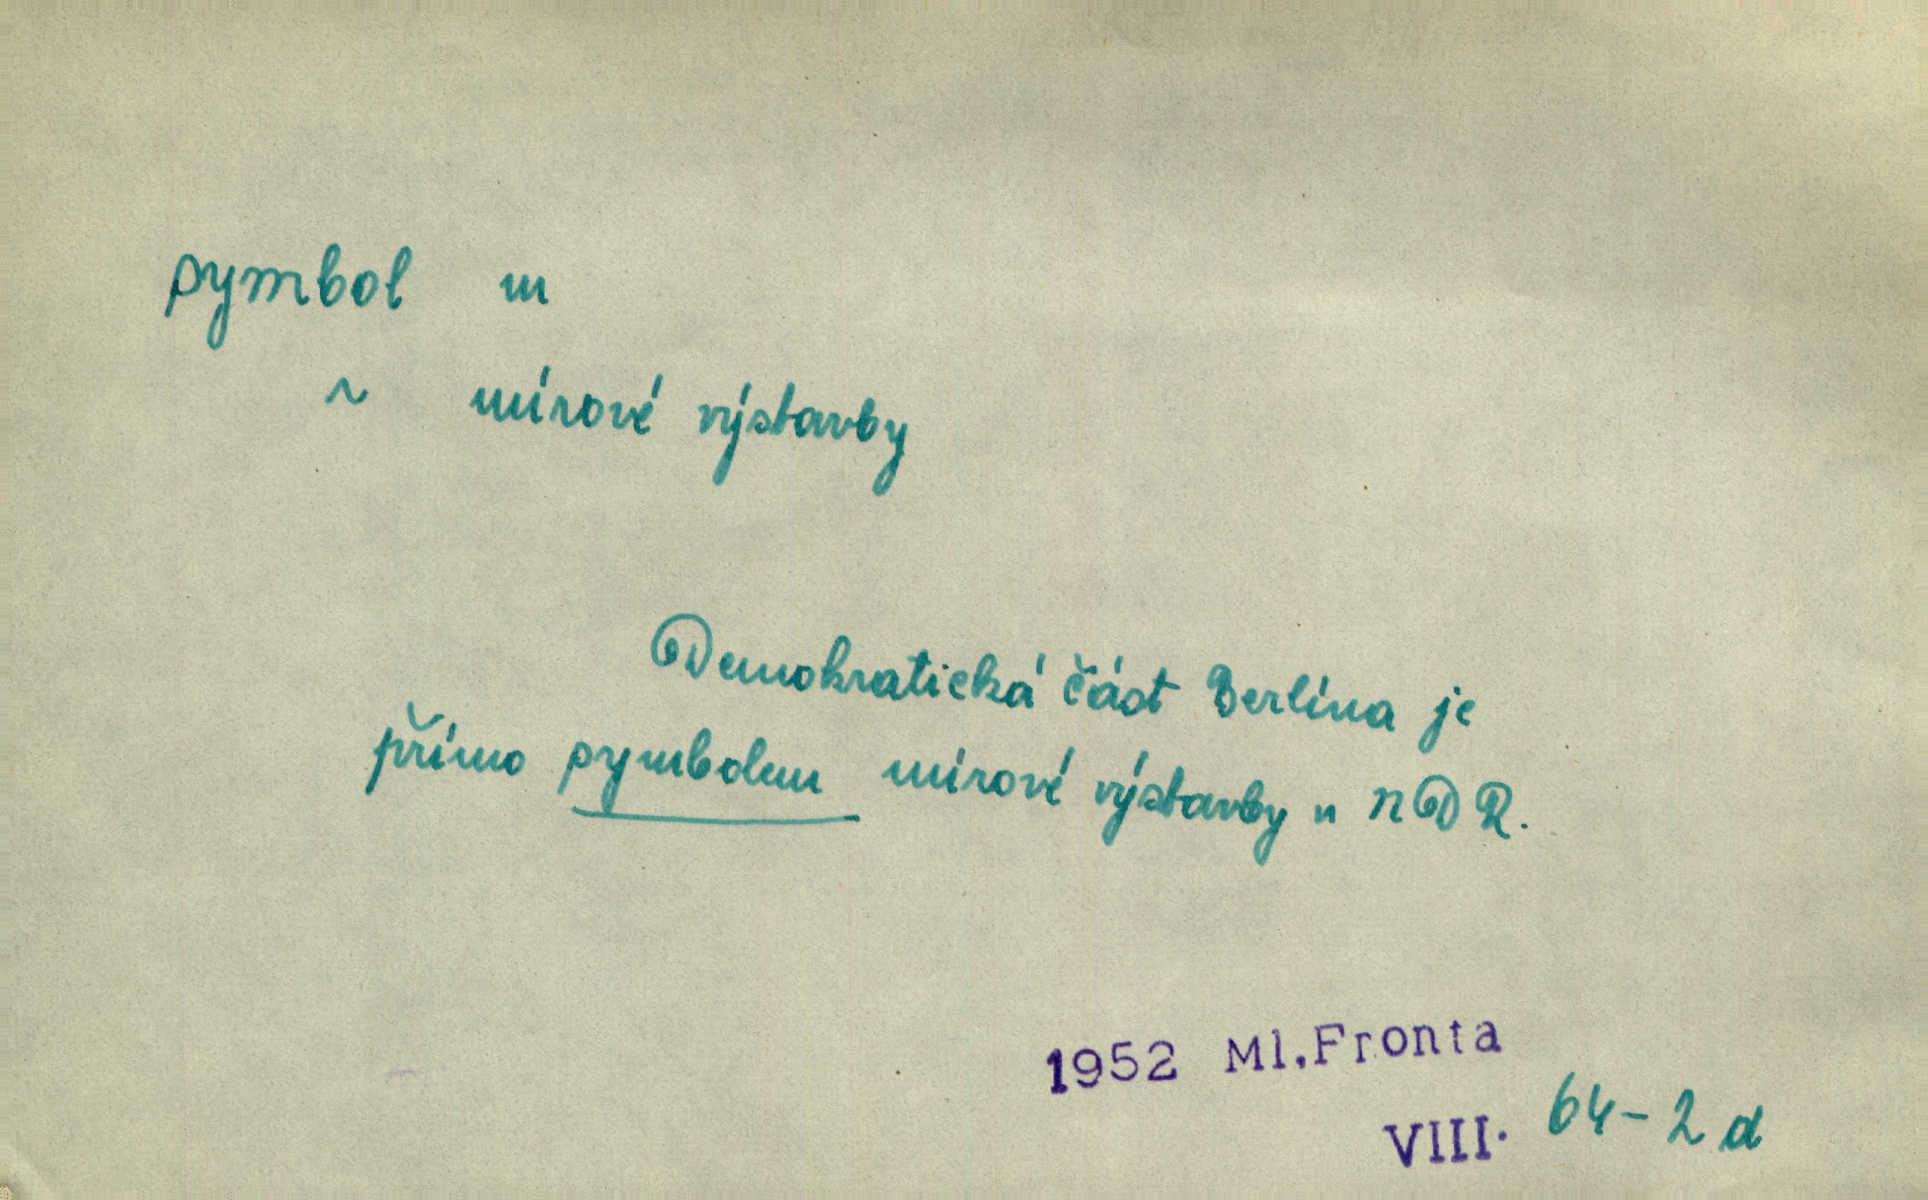 symbol m
~ mírové výstavby
Demokratická část Berlína je
přímo symbolem mírové výstavby v NDR.
1952 Ml.Fronta
VIII. 64-2d